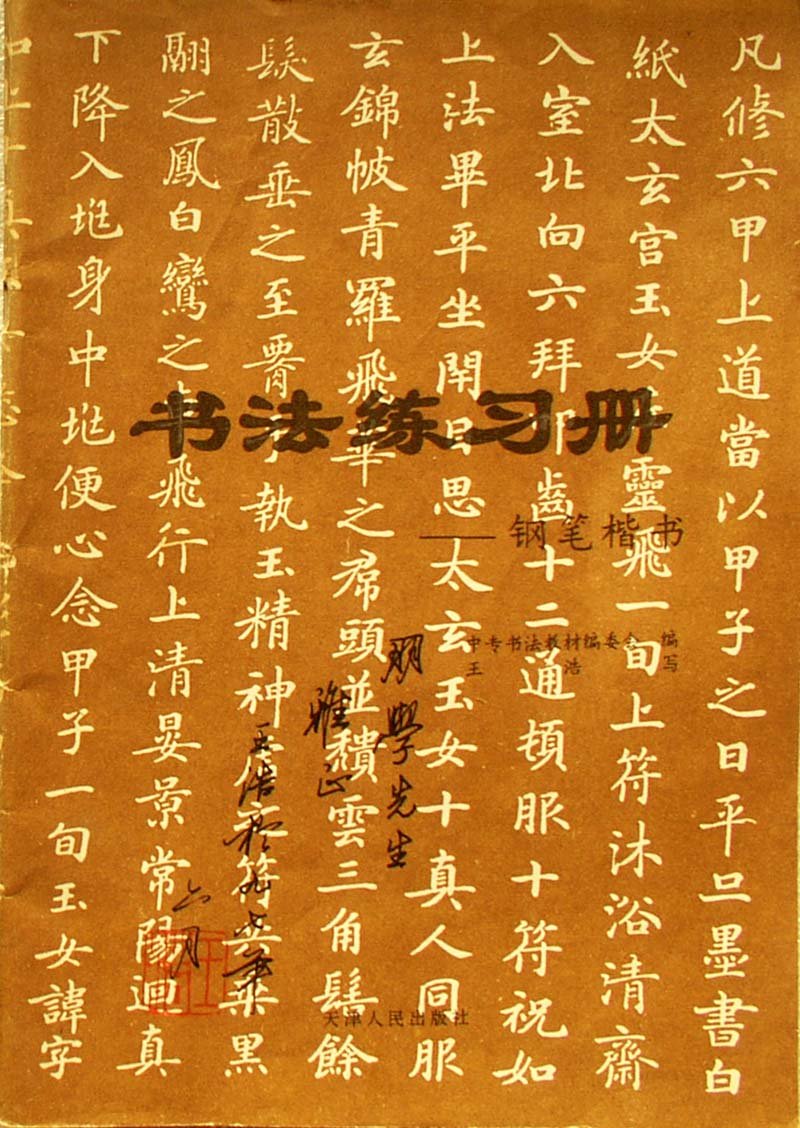 书法练习册
——钢笔楷书
中专书法教材编委会 编
王浩 写
天津人民出版社
朋學先生
雅正
王浩於九七年
六月
凡修六甲上道當以甲子之日平旦墨書白
紙太玄宮玉女左靈飛一旬上符沐浴清齋
入室北向六拜叩齒十二通頓服十符祝如
上法畢平坐閉目思太玄玉女十真人同服
玄錦帔青羅飛華之帬頭並穨雲三角髻餘
髮散垂之至腰手執玉精神虎之符共乘黑
翮之鳳白鸞之車飛行上清晏景常陽迴真
下降入兆身中兆便心念甲子一旬玉女諱字